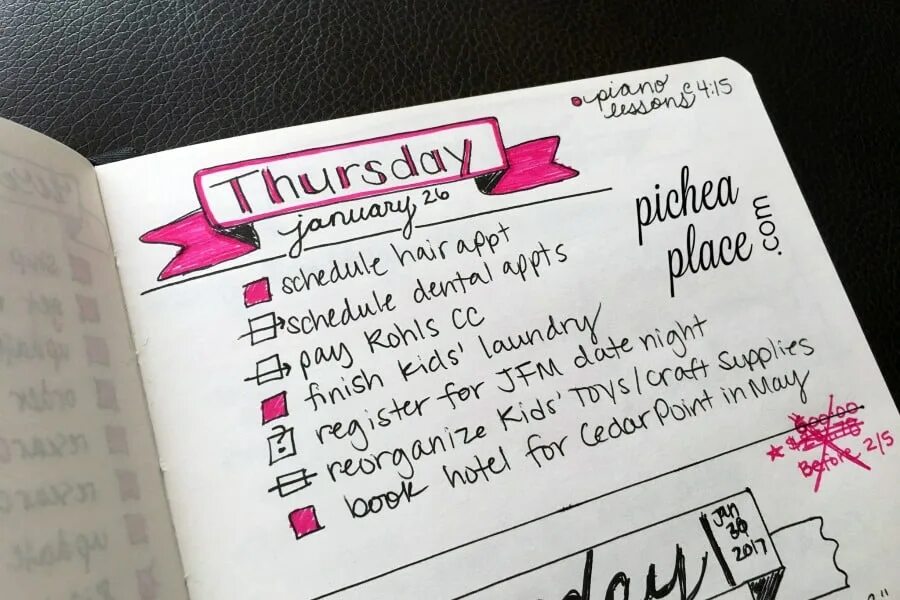 piano
lessons @ 4:15
Thursday
january 26
schedule hair appt
schedule dental appts
pay Kohls CC
finish kids' laundry
register for JFM date night
reorganize kids' toys/craft supplies
book hotel for Cedar Point in May
pichea
place
.com
Before 2/5
day
Jan
2017